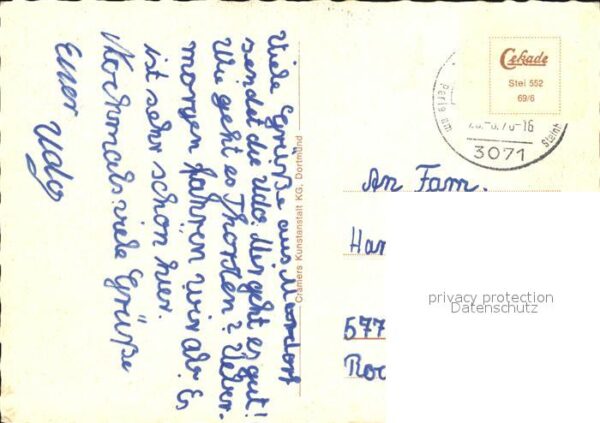 Viele Grüße aus Mardorf
sendet die Udo. Mir geht es gut!
Wie geht es Thorsten? Ueber-
morgen fahren wir ab. Es
ist sehr schön hier.
Nochmals viele Grüße
Euer Udo
Cramers Kunstanstalt KG, Dortmund
Cekade
Stei 552
69/6
Perle am
Steinh
-6.70-16
3071
An Fam.
Har
577
Roc
privacy protection
Datenschutz